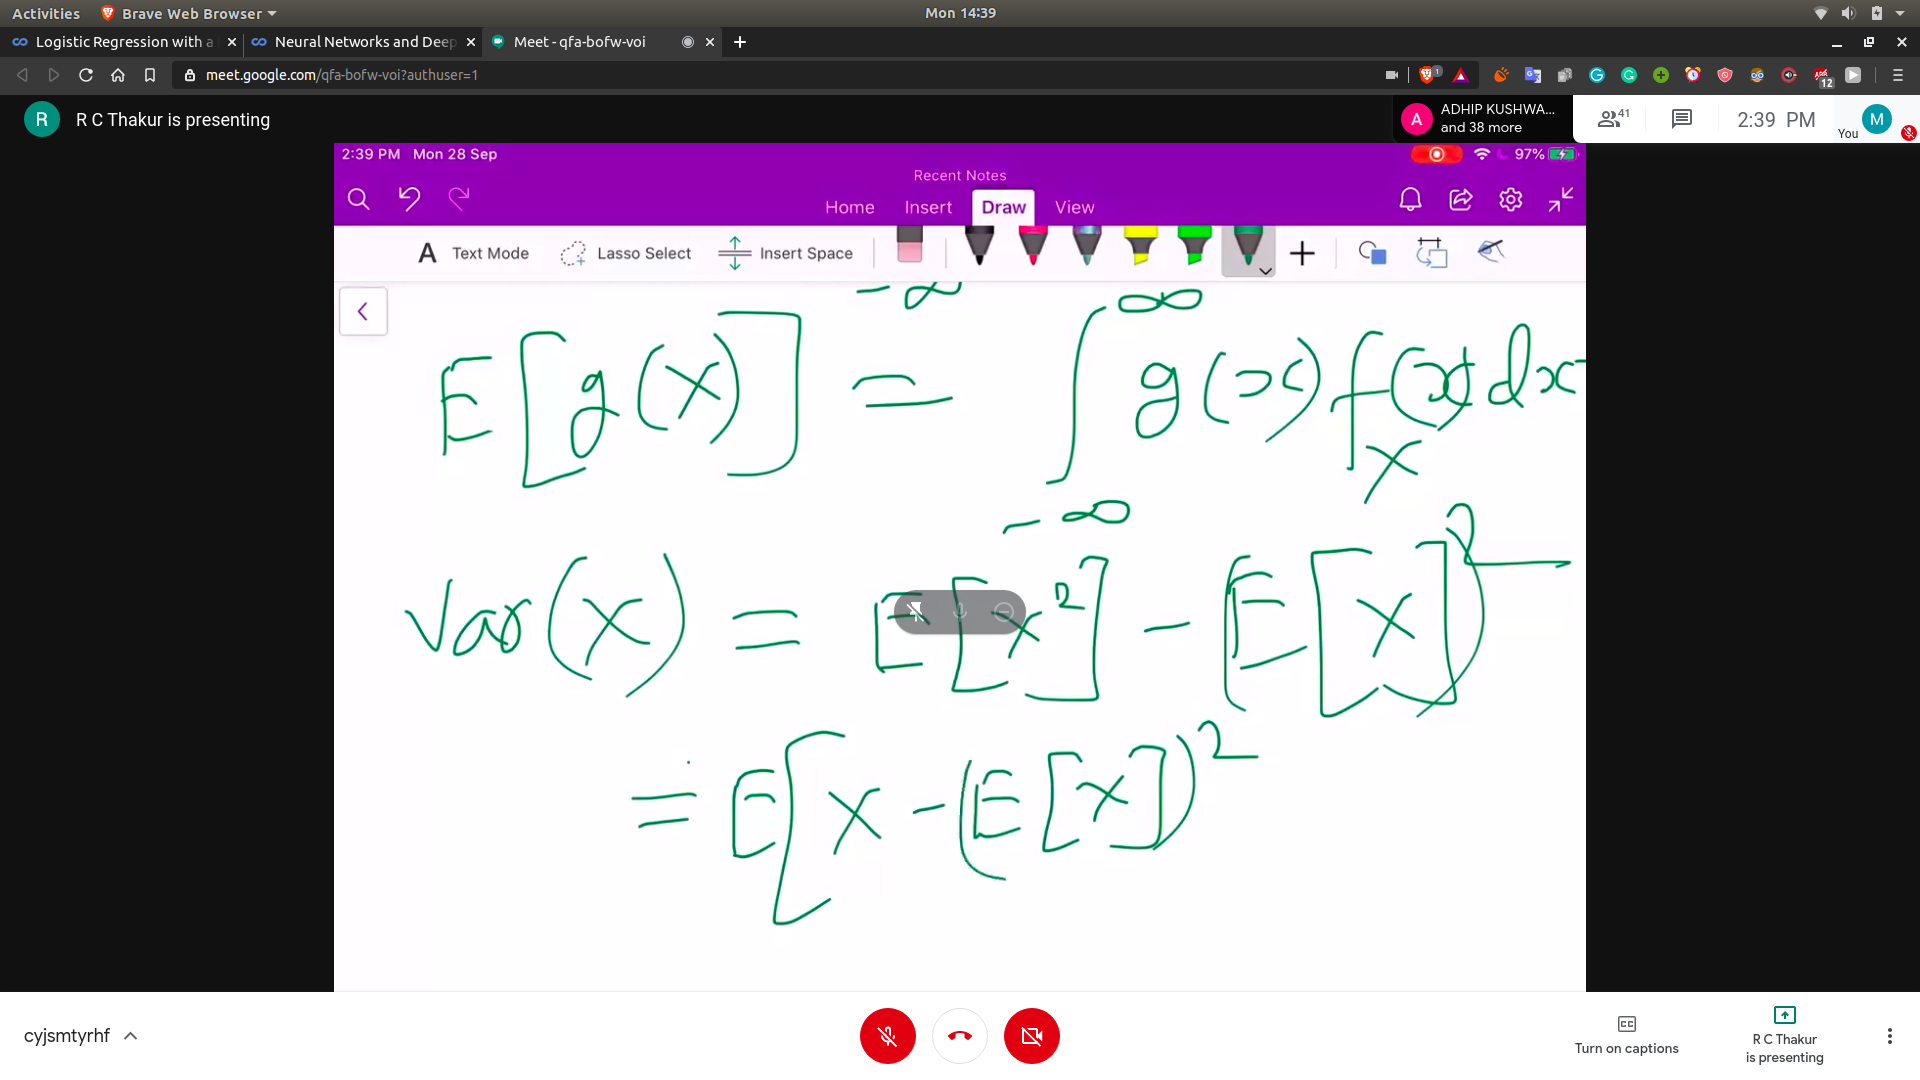 Activities Brave Web Browser Mon 14:39
Logistic Regression with a Neural Networks and Deep Meet - qfa-bofw-voi
meet.google.com/qfa-bofw-voi?authuser=1 1 12
R R C Thakur is presenting A ADHIP KUSHWA... and 38 more 41 2:39 PM You M
2:39 PM Mon 28 Sep 97%
Recent Notes
Home Insert Draw View
A Text Mode Lasso Select Insert Space
-∞
E[g(X)] = ∫_{-∞}^{∞} g(x) f_X(x) dx
Var(X) = E[X²] - (E[X])²
= E[X - (E[X])²
cyjsmtyrhf
Turn on captions
R C Thakur
is presenting